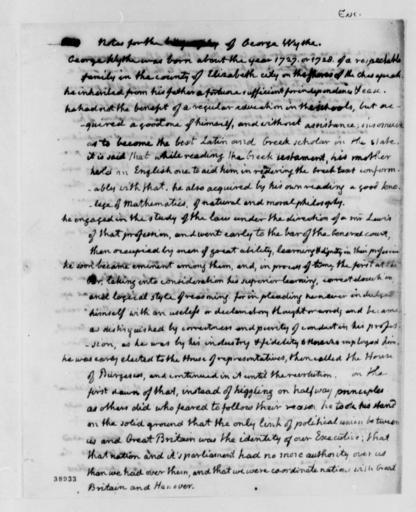 Enc.
Notes for the biography of George Wythe.
George Wythe was born about the year 1727. or 1728. of a respectable
family in the county of Elizabeth city on the shores of the Chesapeak.
he inherited from his father a fortune sufficient for independence & ease.
he had not the benefit of a regular education in the schools, but ac-
-quired a good one of himself, and without assistance; insomuch
as to become the best Latin and Greek scholar in the state.
it is said that while reading the Greek testament, his mother
held an English one to aid him in rendering the Greek text conform-
ably with that. he also acquired by his own reading a good know-
lege of Mathematics, & of natural and moral philosophy.
he engaged in the study of the law under the direction of a mr Lewis
of that profession, and went early to the bar of the General court,
then occupied by men of great ability, learning & dignity in their profession
he soon became eminent among them, and, in process of time, the first at the
bar, taking into consideration his superior learning, correct elocution
and logical style of reasoning. for in pleading he never indulged
himself with an useless or declamatory thought or word; and became
as distinguished by correctness and purity of conduct in his profes-
-sion, as he was by his industry & fidelity to those who employed him.
he was early elected to the House of representatives, then called the House
of Burgesses, and continued in it until the revolution. on the
first dawn of that, instead of higgling on halfway principles
as others did who feared to follow their reason, he took his stand
on the solid ground that the only link of political union between
us and Great Britain was the identity of our Executive; that
that nation and it's parliament had no more authority over us
than we had over them, and that we were coordinate nations with Great
Britain and Hanover.
38933